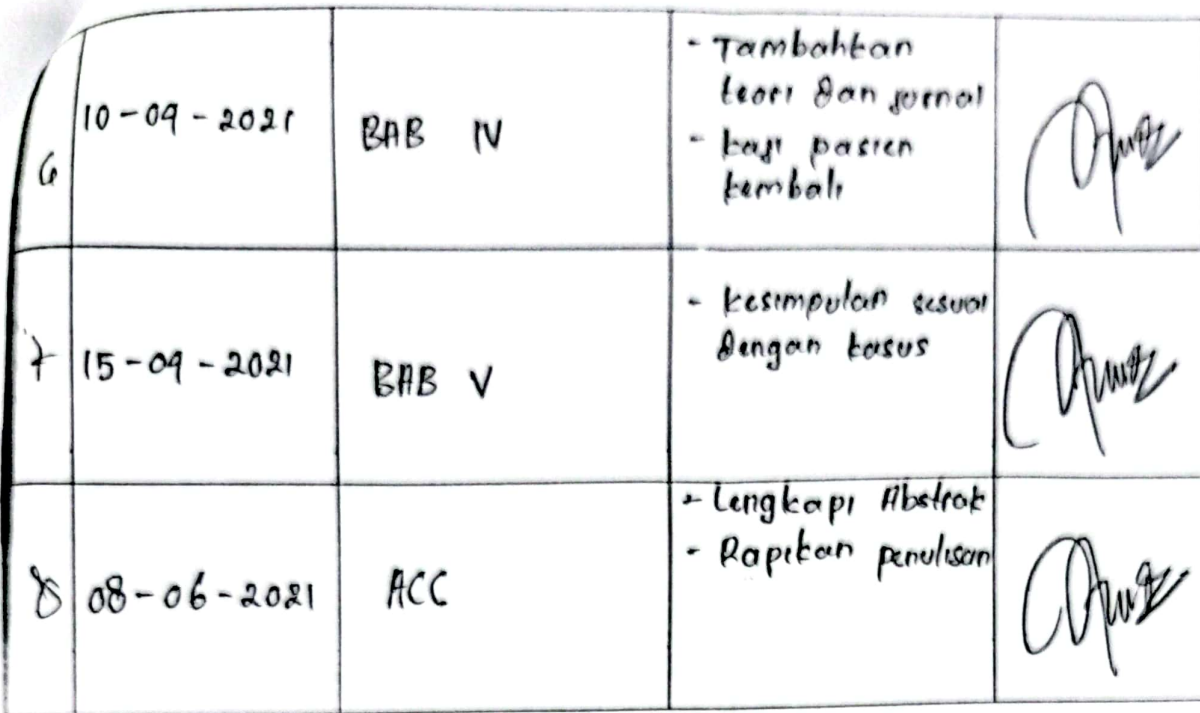 6
10-09-2021
BAB IV
- Tambahkan
teori dan jornal
- kaji pasien
kembali
7
15-09-2021
BAB V
- kesimpulan sesuai
dengan kasus
8
08-06-2021
ACC
- Lengkapi Abstrak
- Rapikan penulisan